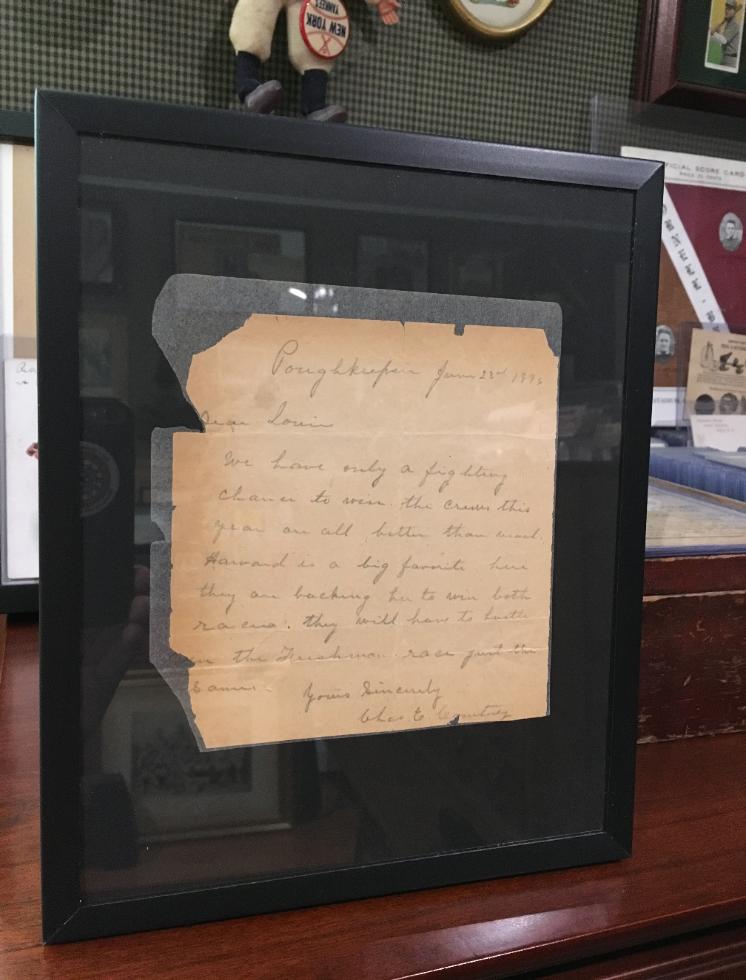 NEW YORK
YANKEES
FICIAL SCORE CARD
Poughkeepsie June 23rd 189
Dear Louis
We have only a fighting
chance to win. the crews this
year are all better than usual.
Harvard is a big favorite here
they are backing her to win both
races. they will have to hustle
in the Freshman race just the
same.
Yours Sincerely
Chas E Courtney